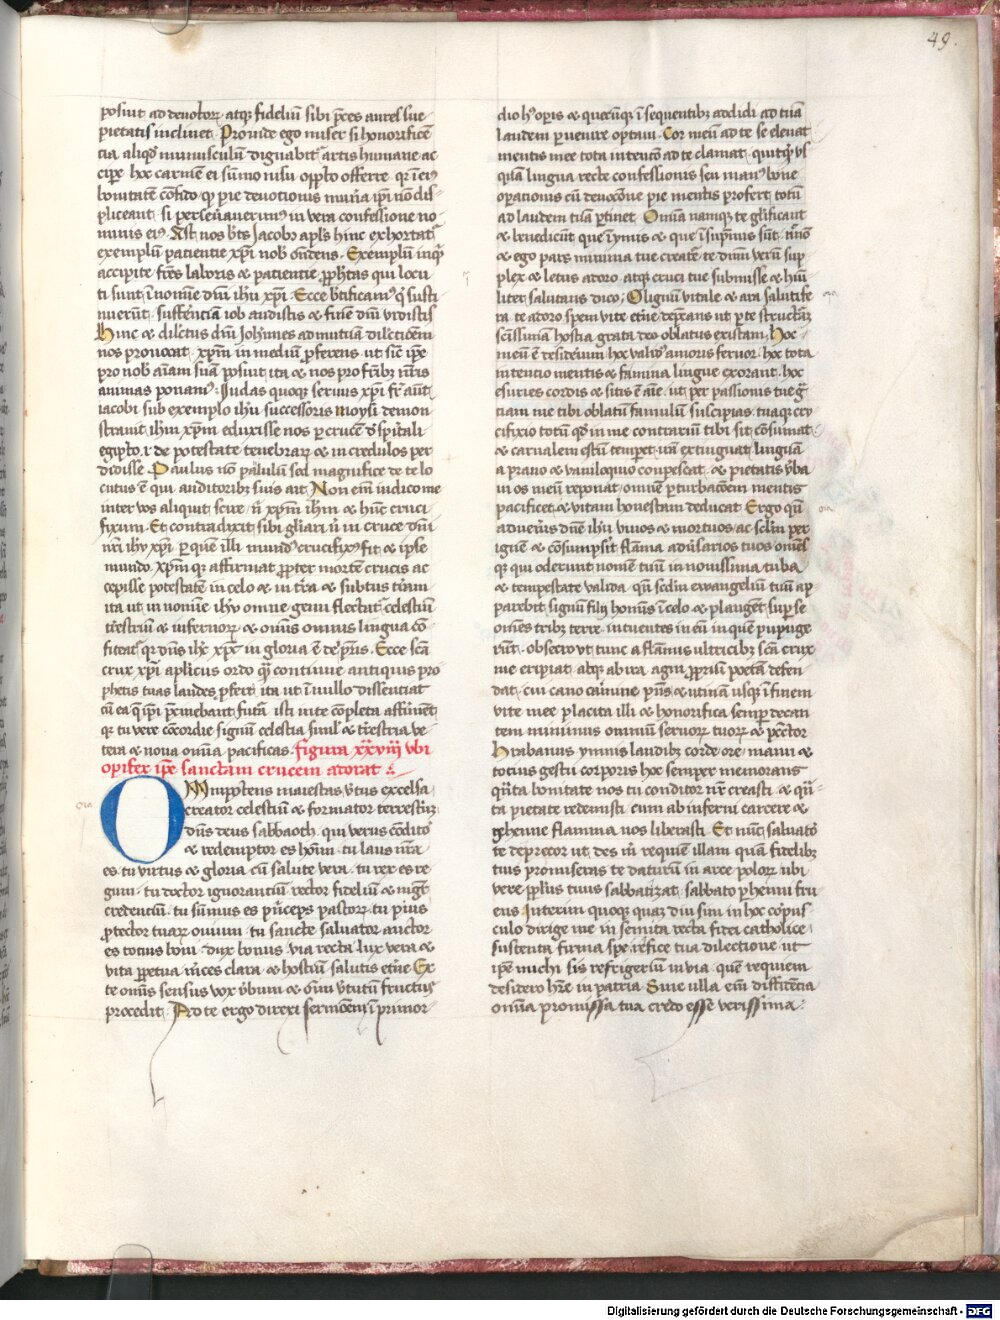 49.
posiuit ad deuotorꝝ atqꝫ fideliū sibi p̄ces aures sue
pietatis inclinet Prouide ego miser si honorificē
cia aliqd̓ munusculū dignabit᷑ artis humane ac
cip̱e hoc carmen ei sūmo nisu opp̱to offerre qꝛ ī eiꝰ
bonitatē cōfido qꝙ pie deuotionis mun̓a ip̄i nō dis
pliceant si perseuerauerimꝰ in vera confessione no
minis eiꝰ Ast nos bt̄s Jacobꝰ apl̓s hinc exhortat᷑
exemplū patientie xp̄i nob̓ on̄dens Exemplū inqꝫ
accipite fr̄es laboris ⁊ patientie ꝓph̓tas qui locu
ti sunt ī nomīe dn̄i ih̓u xp̄i Ecce bt̓ificamꝰ qͥ susti
nuerūt suffr̄entiā iob audistis ⁊ finē dn̄i vidistis
Hinc ⁊ dilc̄tus dn̄i Johānes ad mutuā dilc̄tiōem
nos prouocat xp̄m in mediū ꝓferens ut sic̄ ip̄e
pro nob̓ aīam suā posiuit ita ⁊ nos pro fr̄ibꝫ nr̄is
animas ponamꝰ Judas quoqꝫ seruus xp̄i fr̄ aūt
iacobi sub exemplo ih̓u successoris moysi demon
strauit ih̓m xp̄m eduxisse nos ꝑ crucē d̓ spūali
egipto ⁊ de potestate tenebrarꝝ ⁊ in credulos per
didisse Paulus nō paululū sed magnifice de te lo
cutus ē qui auditoribꝫ suis ait Non eīm iudico me
inter vos aliquit scire n̄ xp̄m ih̓m ⁊ hūc cruci
fixum Et contradixit sibi gl̓iari n̄ in cruce dn̄i
nr̄i ih̓u xp̄i ꝑ quē illi mundꝰ crucifixꝰ fit ⁊ ip̄e
mundo xp̄m qꝫ affirmat ꝓpter mortē crucis ac
cepisse potestatē in celo ⁊ in tr̄ra ⁊ subtus tr̄ram
ita ut in nomīe ih̓u omne genu flectat᷑ celestiū
tr̓restriū ⁊ infernorꝝ ⁊ om̄is omnis lingua cō
fiteat᷑ qꝛ dn̄s ih̓c xp̄c in gloria ē dei pr̄is Ecce sc̄a
crux xp̄i apl̓icus ordo qͣꝫ continue antiquis pro
phetis tuas laudes ꝓfert ita ut ī nullo dissentiat
cū ea qͥ ip̄i p̄cinebant futa᷑ isti rite cōpleta affirmēt
qꝫ tu vere cōcordie signū celestia simil̓ ⁊ tr̓restria ve
tera ⁊ noua om̄ia pacificas figura xxviij vbi
opifex ip̄e sanctam crucem adorat
OMnipotens maiestas v̓tus excelsa
creator celestiū ⁊ formator terrestriū
dn̄s deus sabbaoth qui verus cōditoꝛ
⁊ redemptor es hoīm tu laus nr̄a
es tu virtus ⁊ gloria cū salute vera tu rex es re
gum tu doctor ignorantiū rector fidelium ⁊ mgr̄
credentiū tu sūmus es p̓nceps pastorꝝ tu pius
ꝓtector tuarꝝ ouium tu sancte saluator auctor
es totius boni dux bonus via recta lux vera ⁊
vita ꝑpetua m̓ces clara ⁊ hostiū salutis et̓ne Ex
te om̄is sensus vox v̓bum ⁊ om̄ v̓tutū fructus
procedit Ad te ergo direxi sermōem ī primor
dio hꝰ oꝑis ⁊ quecūqꝫ ī sequentibꝫ addidi ad tuā
laudem ꝑuenire optaui Cor meū ad te se eleuat
mentis mee tota intencō ad te clamat quitqͥd vl̓
quā lingua recte confessionis seu manꝰ bone
oꝑationis cū deuocōne pie mentis profert totū
ad laudem tuā ꝑtinet Om̄ia namqꝫ te gl̓ificant
⁊ benedicūt que īymis ⁊ que ī sup̄mis sūt n̄mō
⁊ ego pars minima tue creat᷑e te dīm verū sup
plex ⁊ letus adoro atqꝫ cruci tue submisse ⁊ hūi
liter salutaris dico O lignū vitale ⁊ ara salutife
ra te adoro spem vite et̓ne dep̄cans ut ꝑ te structā
sc̄issimā hostia grata deo oblatus existam Hoc
meū ē desideriū hoc validꝰ amoris feruor hoc tota
intencio mentis ⁊ famina lingue exorant hoc
esuries cordis ⁊ sitis ē aīe ut per passionis tue gr̄
ciam me tibi oblatū famulū suscipias tuaqꝫ cru
cifixio totū qd̓ in me contrariū tibi sit cōsumat
⁊ carnalem estū temꝑet irā extinguat linguā
a prauo ⁊ vaniloquio conpescat ⁊ pietatis v̓ba
in os meū reponat omnē ꝑturbacōem mentis
pacificet ⁊ vitam honestam deducat Ergo qn̄
adueneris dn̄e ih̓u viuos ⁊ mortuos ac sclm̄ per
ignē ⁊ cōsumpsit flāma adu̓sarios tuos omēs
qꝫ qui oderunt nomē tuū in nouissima tuba
⁊ tempestate valida qn̄ scdm̄ ewangeliū tuū ap
parebit signū filij homīs ī celo ⁊ plangēt suꝑ se
omēs tribꝫ terre intuentes in eū in quē pupuge
rūt obsecro ut tunc a flāmis ultricibꝫ sc̄a crux
me eripiat atqꝫ ab ira agni ꝓpriū poetam defen
dat cui cano carmine p̄ns ⁊ utinā usqꝫ ī finem
vite mee placita illi ⁊ honorifica semꝑ decan
tem minimus omniū seruorꝝ tuorꝝ ⁊ pc̄ctor
Hrabanus ymnis laudibꝫ corde ore manu ⁊
totius gestu corporis hoc semper memorans
qͣnta bonitate nos tu conditor nr̄ creasti ⁊ qͣn
ta pietate redemisti cum ab inferni carcere ⁊
gehenne flamma nos liberasti Et nūc saluatoꝛ
te deprecor ut des m̓ requiē illam quā fidelibꝫ
tuis promiseras te daturū in arce polorꝝ ubi
vere pp̄lus tuus sabbatizat sabbato ꝑhenni fru
ens Interim quoqꝫ quā diu sim in hoc corpus
culo dirige me in semita recta fidei catholice
sustenta firma spe refice tua dilectione ut
ip̄e michi sis refrigeriū in via quē requiem
desidero hr̄e in patria Siue ulla eīm diffidentia
om̄ia promissa tua credo esse verissima
Digitalisierung gefördert durch die Deutsche Forschungsgemeinschaft - DFG